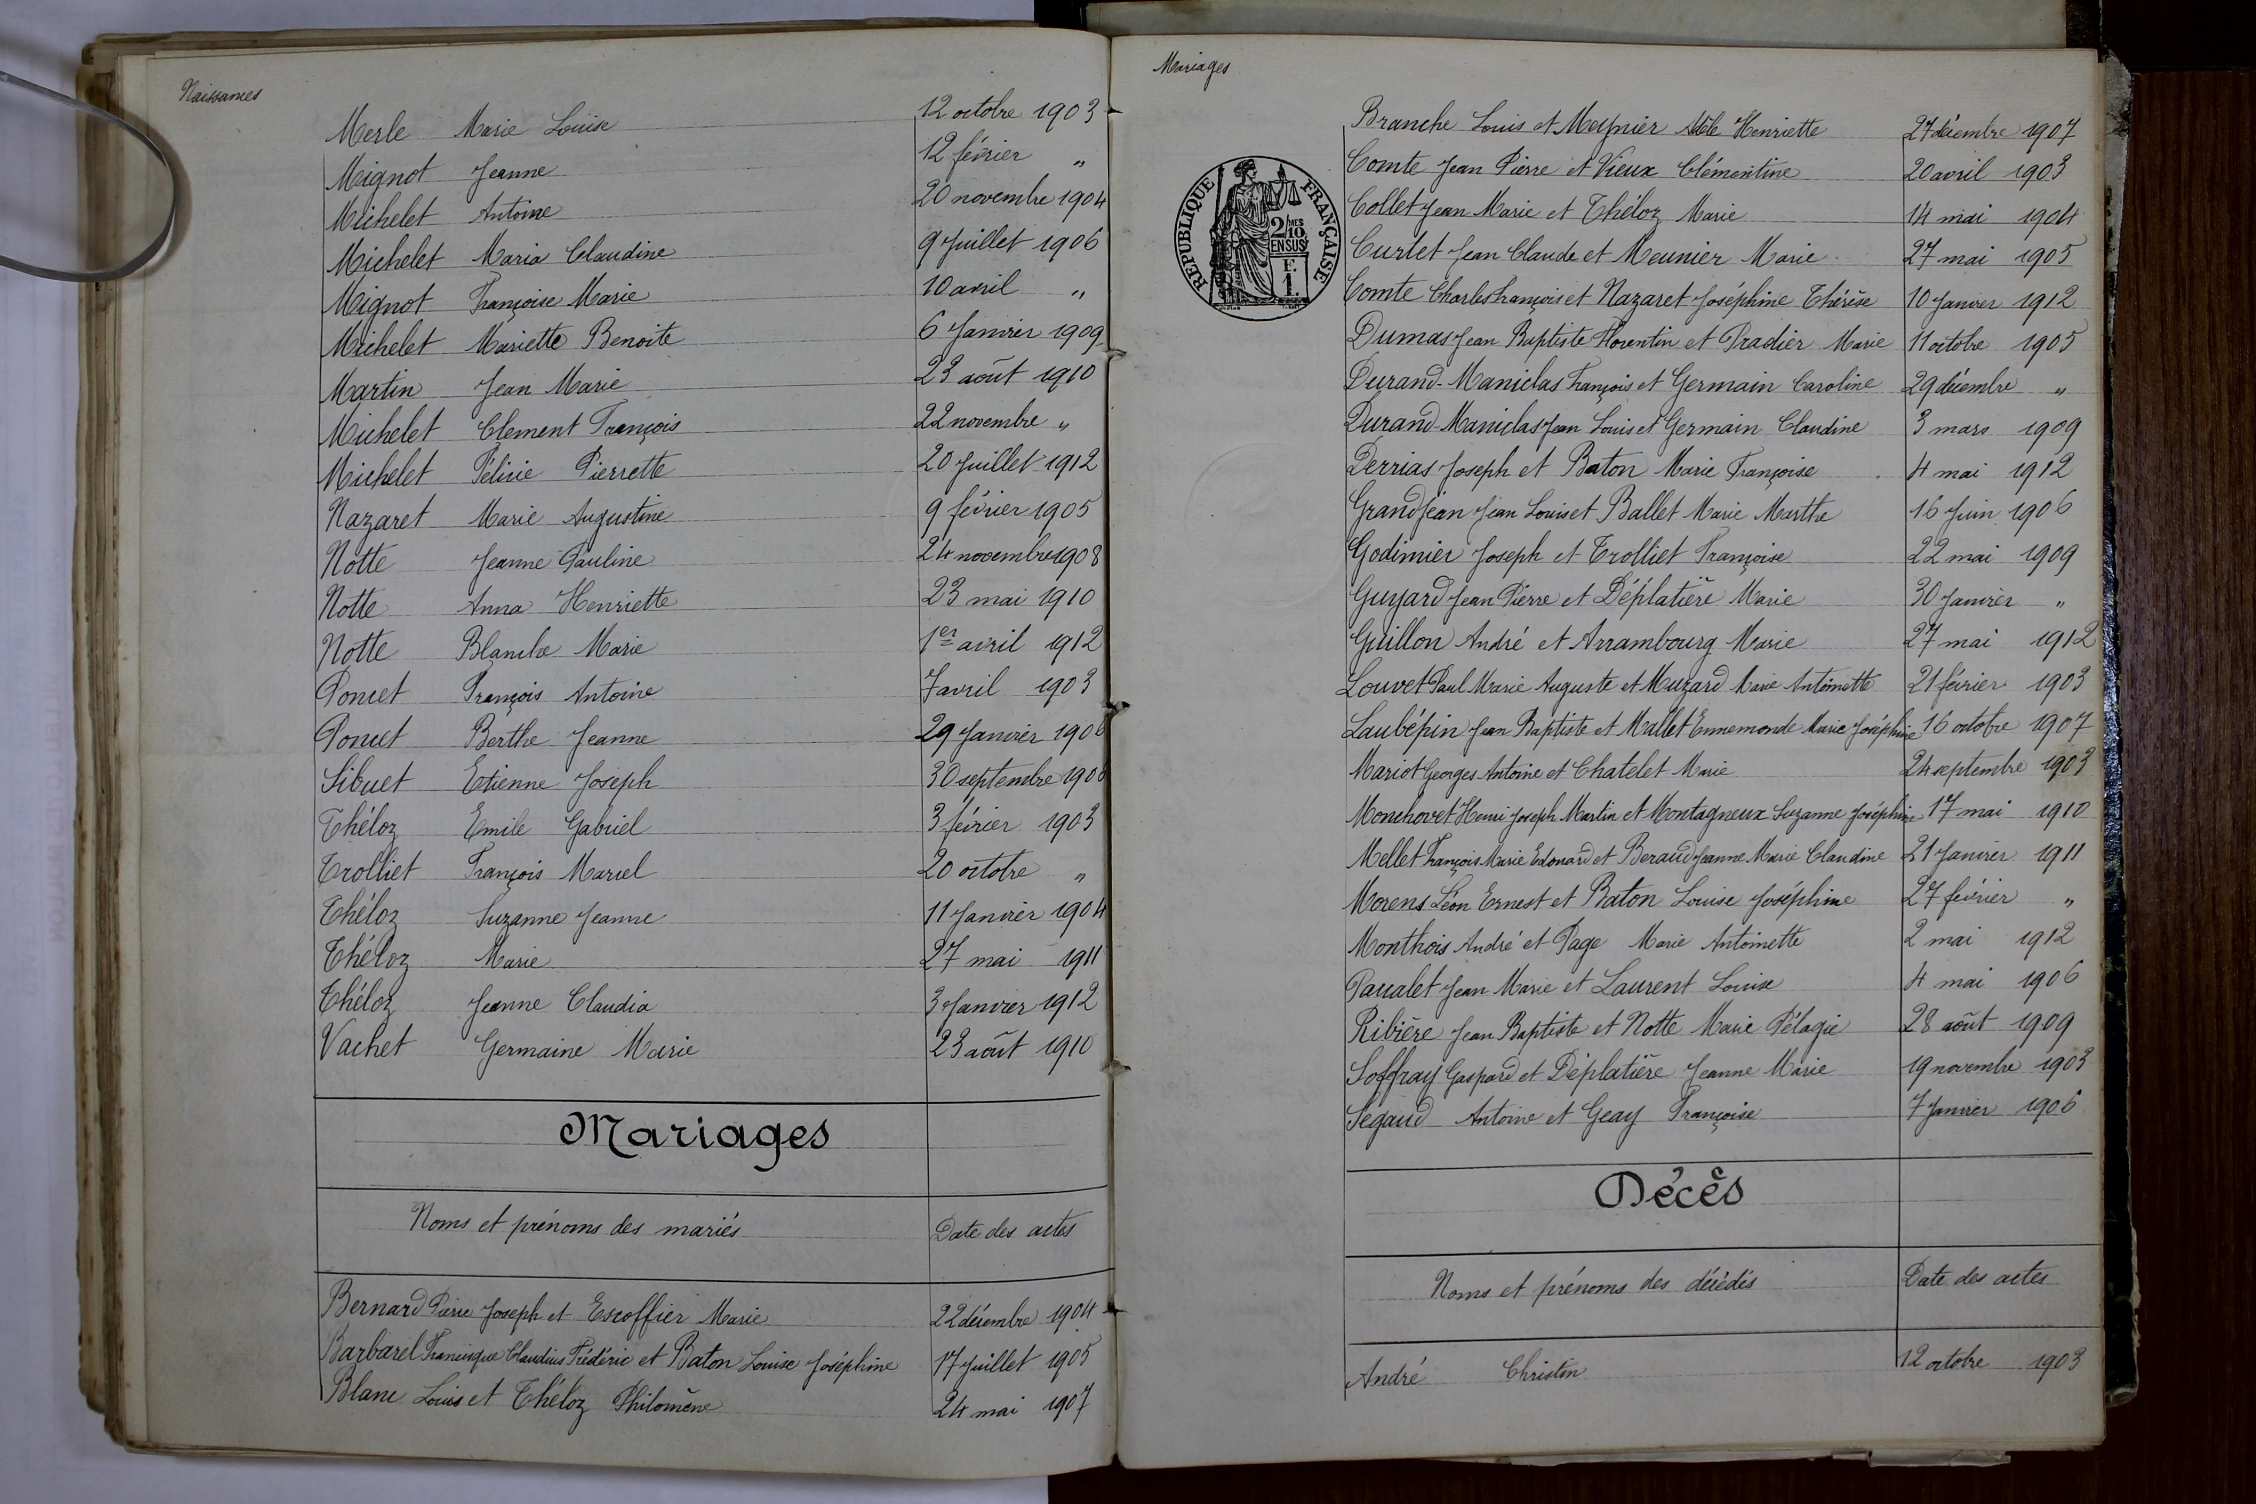 Naissances
Merle Marie Louise 12 octobre 1903
Mignot Jeanne 12 février "
Michelet Antoine 20 novembre 1904
Michelet Maria Claudine 9 Juillet 1906
Mignot Françoise Marie 10 avril "
Michelet Mariette Benoite 6 Janvier 1909
Martin Jean Marie 23 août 1910
Michelet Clément François 22 novembre "
Michelet Félicie Pierrette 20 Juillet 1912
Nazaret Marie Augustine 9 février 1905
Notte Jeanne Pauline 24 novembre 1908
Notte Anna Henriette 23 mai 1910
Notte Blanche Marie 1er avril 1912
Poncet François Antoine 7 avril 1903
Poncet Berthe Jeanne 29 Janvier 1906
Sibuet Etienne Joseph 30 septembre 1906
Théloz Emile Gabriel 3 février 1903
Trolliet François Marcel 20 octobre "
Théloz Suzanne Jeanne 11 Janvier 1904
Théloz Marie 27 mai 1911
Théloz Jeanne Claudia 3 Janvier 1912
Vachet Germaine Marie 23 août 1910
Mariages
Noms et prénoms des mariés Date des actes
Bernard Pierre Joseph et Escoffier Marie 22 décembre 1904
Barbarel Francisque Claudius Frédéric et Baton Louise Joséphine 17 Juillet 1905
Blanc Louis et Théloz Philomène 24 mai 1907
Mariages
RÉPUBLIQUE FRANÇAISE
2/10 MES
EN SUS
F.
1.
Branche Louis et Meynier Adèle Henriette 27 décembre 1907
Comte Jean Pierre et Vieux Clémentine 20 avril 1903
Collet Jean Marie et Théloz Marie 14 mai 1904
Curtet Jean Claude et Meunier Marie 27 mai 1905
Comte Charles François et Nazaret Joséphine Thérèse 10 Janvier 1912
Dumas Jean Baptiste Florentin et Pradier Marie 11 octobre 1905
Durand-Maniclas François et Germain Caroline 29 décembre "
Durand-Maniclas Jean Louis et Germain Claudine 3 mars 1909
Derrias Joseph et Baton Marie Françoise 4 mai 1912
Grandjean Jean Louis et Ballet Marie Marthe 16 Juin 1906
Godimier Joseph et Trolliet Françoise 22 mai 1909
Guyard Jean Pierre et Déplatière Marie 30 Janvier "
Guillon André et Arrambourg Marie 27 mai 1912
Louvet Paul Marie Auguste et Muzard Marie Antoinette 21 février 1903
Laubépin Jean Baptiste et Mallet Ennemonde Marie Joséphine 16 octobre 1907
Mariot Georges Antoine et Chatelet Marie 24 septembre 1903
Monchovet Henri Joseph Martin et Montagneux Suzanne Joséphine 17 mai 1910
Mellet François Marie Edouard et Beraud Jeanne Marie Claudine 21 Janvier 1911
Morens Léon Ernest et Baton Louise Joséphine 27 février "
Monthois André et Page Marie Antoinette 2 mai 1912
Pacalet Jean Marie et Laurent Louise 4 mai 1906
Ribière Jean Baptiste et Notte Marie Pélagie 28 août 1909
Soffray Gaspard et Déplatière Jeanne Marie 19 novembre 1903
Segaud Antoine et Geay Françoise 7 Janvier 1906
Décès
Noms et prénoms des décédés Date des actes
André Christin 12 octobre 1903